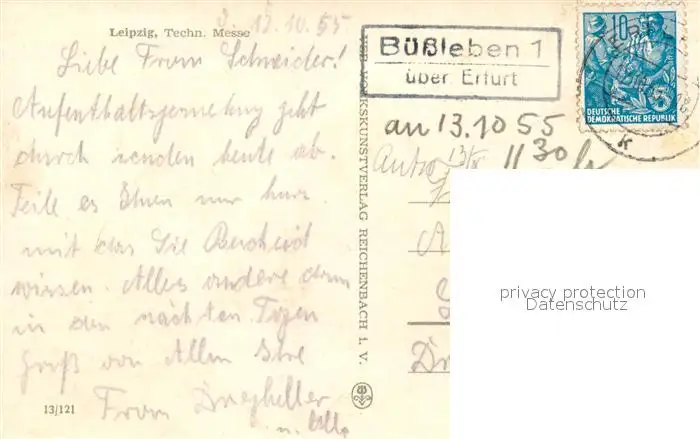 Leipzig, Techn. Messe
3. 13.10.55
Liebe Frau Schneider!
Aufenthaltsgenehmigung geht
durch senden heute ab.
Teile es Ihnen nur kurz
mit das Sie Bescheid
wissen. Alles andere dann
in den nächsten Tagen
Gruß von Allen Ihre
Frau
u.
13/121
VEB VOLKSKUNSTVERLAG REICHENBACH I. V.
Büßleben 1
über Erfurt
10
5
DEUTSCHE
DEMOKRATISCHE REPUBLIK
an 13.10 55
1130 h
privacy protection
Datenschutz